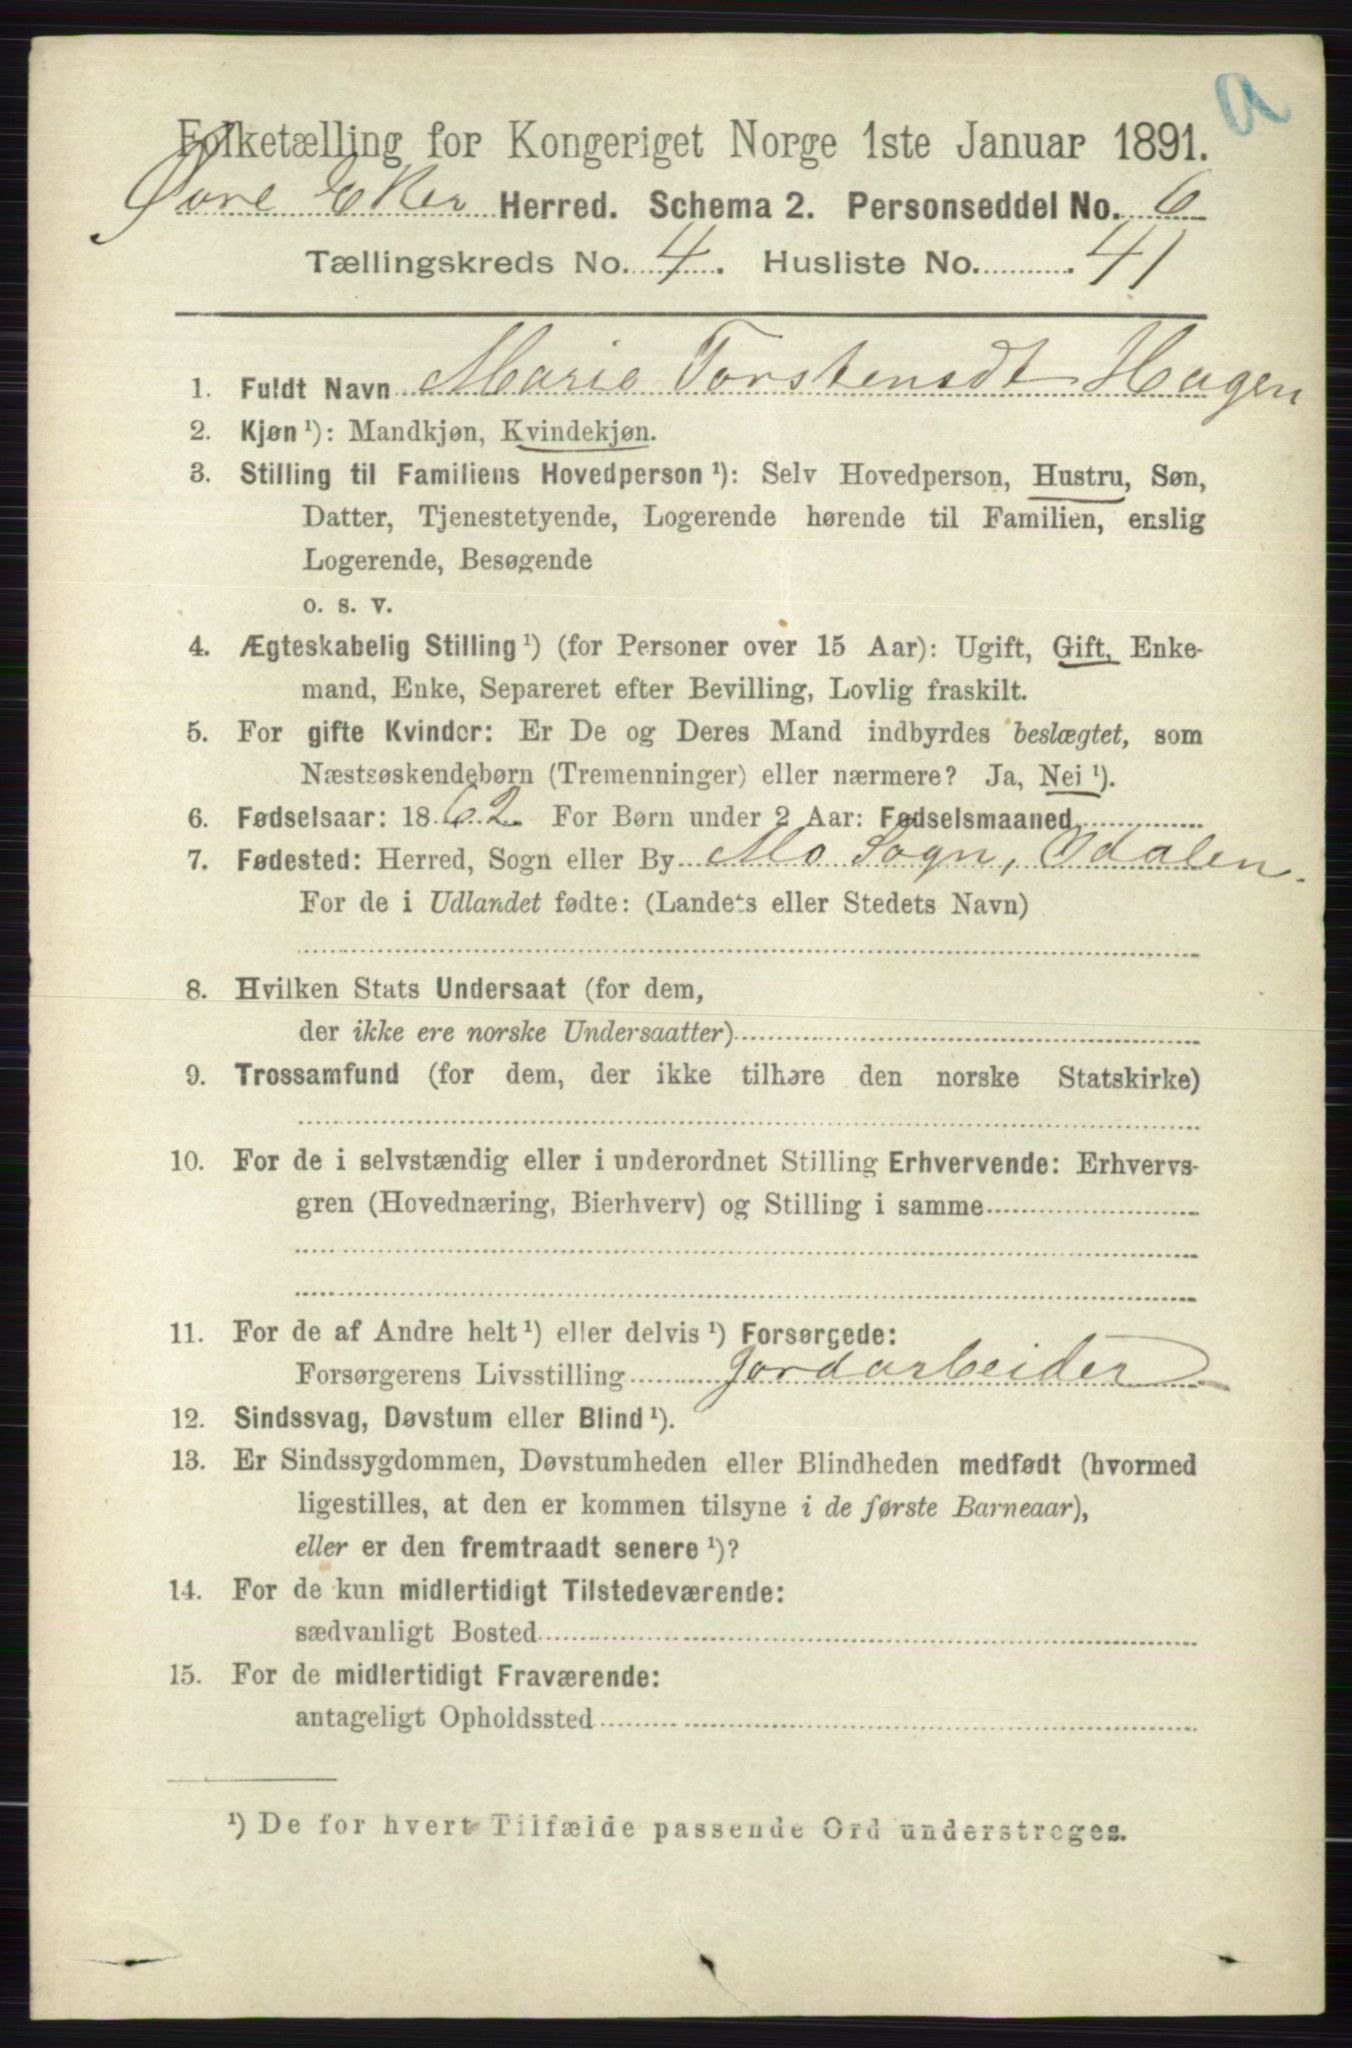 a
Folketælling for Kongeriget Norge 1ste Januar 1891.
Øvre Eker Herred. Schema 2. Personseddel No. 6
Tællingskreds No. 4. Husliste No. 41
1. Fuldt Navn Marie Torstensdt Hagen
2. Kjøn ¹): Mandkjøn, Kvindekjøn.
3. Stilling til Familiens Hovedperson ¹): Selv Hovedperson, Hustru, Søn,
Datter, Tjenestetyende, Logerende hørende til Familien, enslig
Logerende, Besøgende
o. s. v.
4. Ægteskabelig Stilling ¹) (for Personer over 15 Aar): Ugift, Gift, Enke-
mand, Enke, Separeret efter Bevilling, Lovlig fraskilt.
5. For gifte Kvinder: Er De og Deres Mand indbyrdes beslægtet, som
Næstsøskendebørn (Tremenninger) eller nærmere? Ja, Nei ¹).
6. Fødselsaar: 1862. For Børn under 2 Aar: Fødselsmaaned
7. Fødested: Herred, Sogn eller By Mo Sogn, Odalen.
For de i Udlandet fødte: (Landets eller Stedets Navn)
8. Hvilken Stats Undersaat (for dem,
der ikke ere norske Undersaatter)
9. Trossamfund (for dem, der ikke tilhøre den norske Statskirke)
10. For de i selvstændig eller i underordnet Stilling Erhvervende: Erhvervs-
gren (Hovednæring, Bierhverv) og Stilling i samme
11. For de af Andre helt ¹) eller delvis ¹) Forsørgede:
Forsørgerens Livsstilling Jordarbeider
12. Sindssvag, Døvstum eller Blind ¹).
13. Er Sindssygdommen, Døvstumheden eller Blindheden medfødt (hvormed
ligestilles, at den er kommen tilsyne i de første Barneaar),
eller er den fremtraadt senere ¹)?
14. For de kun midlertidigt Tilstedeværende:
sædvanligt Bosted
15. For de midlertidigt Fraværende:
antageligt Opholdssted
¹) De for hvert Tilfælde passende Ord understreges.